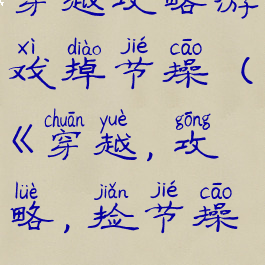 穿越攻略游
xì diào jié cāo
戏掉节操（
chuān yuè gōng
《穿越,攻
lüè jiǎn jié cāo
略,捡节操